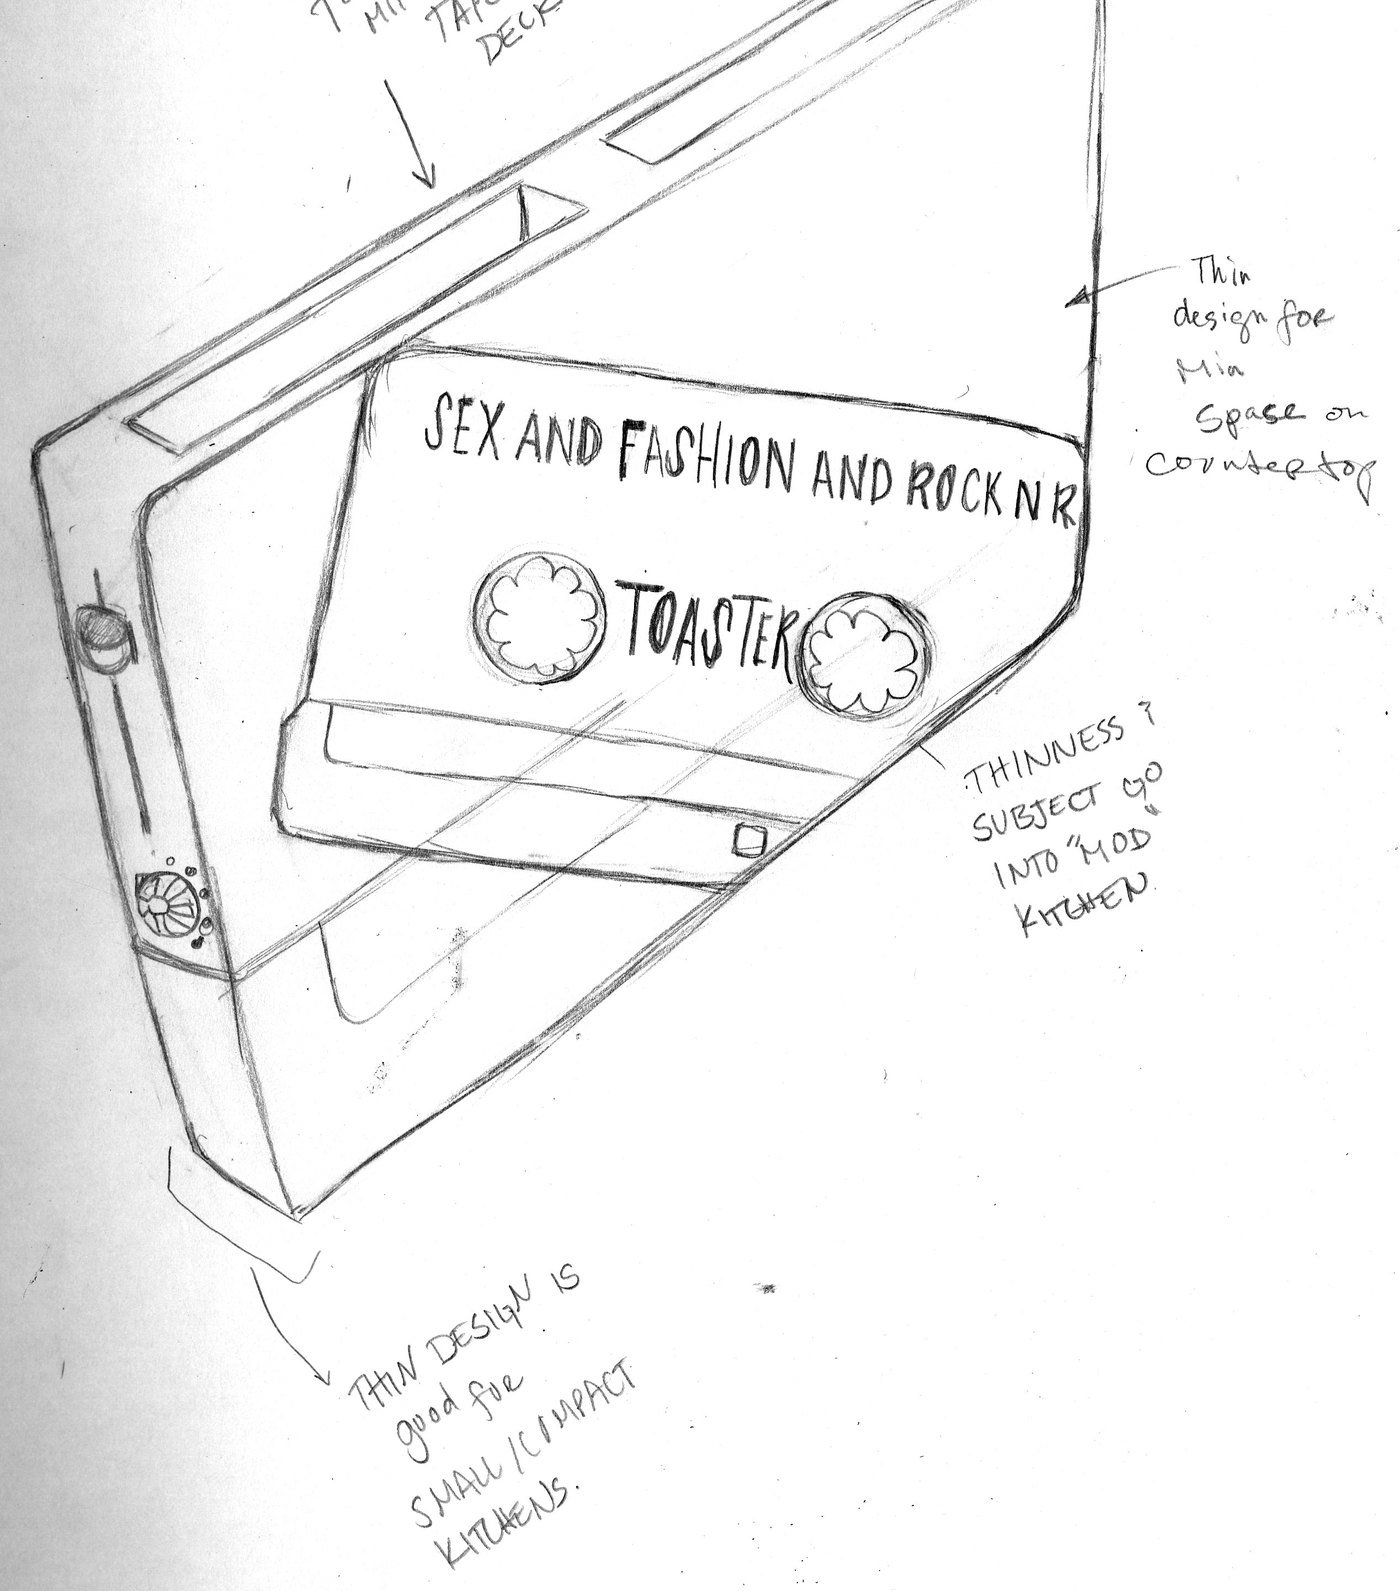 TAPE
DECK
SEX AND FASHION AND ROCK N R
TOASTER
Thin
design for
Min
Spase on
countertop
THINNESS &
SUBJECT GO
INTO "MOD"
KITCHEN
THIN DESIGN IS
good for
SMALL/COMPACT
KITCHENS.